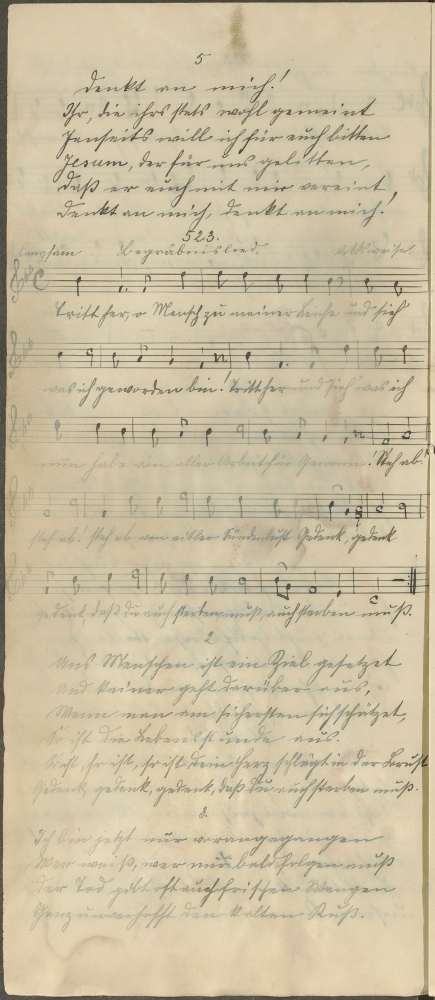 5
Denkt an mich!
Ihr, die ihrs stets wohl gemeint
Jenseits will ich für euch bitten
Jesum, der für uns gelitten,
Daß er euch mit mir vereint,
Denkt an mich, denkt an mich!
523.
Langsam Begräbnislied.
Tritt her, o Mensch zu meiner Leiche und sieh
was ich geworden bin! Tritt her und sieh was ich
nun habe von aller Arbeit für Gewinn! Steh ab!
steh ab, steh ab von eitler Sündenlust Gedenk, gedenk
gedenk daß du auch sterben mußt, auch sterben mußt.
2
Uns Menschen ist ein Ziel gesetzet
Und keiner geht darüber aus,
Wenn man am sichersten sich schätzet,
So ist die Lebensstunde aus.
dein Herz schlägt in der Brust
Gedenk, gedenk, gedenk, daß du auch sterben mußt.
3.
Ich bin jetzt nur vorangegangen
Wer weiß, wer mir bald folgen muß
Der Tod gibt oft auch frischen Wangen
Ganz unverhofft den kalten Kuß.